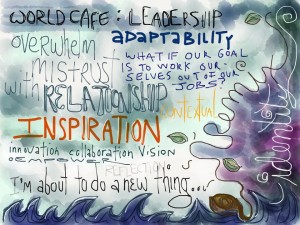 WORLD CAFE: LEADERSHIP
OVERWHELM
ADAPTABILITY
MISTRUST
WHAT IF OUR GOAL
IS TO WORK OUR-
SELVES OUT OF OUR
JOBS?
with RELATIONSHIP
contextual
INSPIRATION
innovation collaboration Vision
EMPOWER
REFLECTION
I'm about to do a new thing...
identity